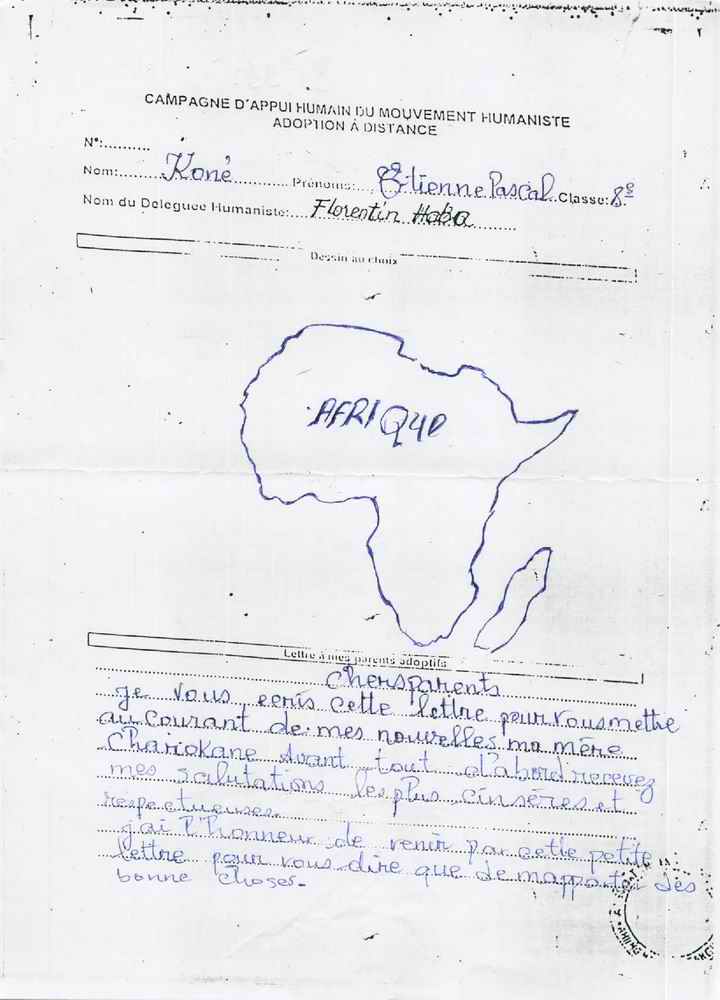 CAMPAGNE D'APPUI HUMAIN DU MOUVEMENT HUMANISTE
ADOPTION À DISTANCE
N°:..........
Nom:.......Koné............. Prénoms:....Etienne Pascal..Classe:8e
Nom du Deleguee Humaniste:....Florentin Haba..........
Dessin au choix
AFRIQUE
Lettre à mes parents adoptifs
chers parents
je vous ecris cette lettre pour vous mettre
au courant de mes nouvelles ma mère
Avant tout d'abord recevez
mes salutations les plus cinsères et
respectueuses.
j'ai l'honneur de venir par cette petite
lettre pour vous dire que de mapporter des
bonne choses.